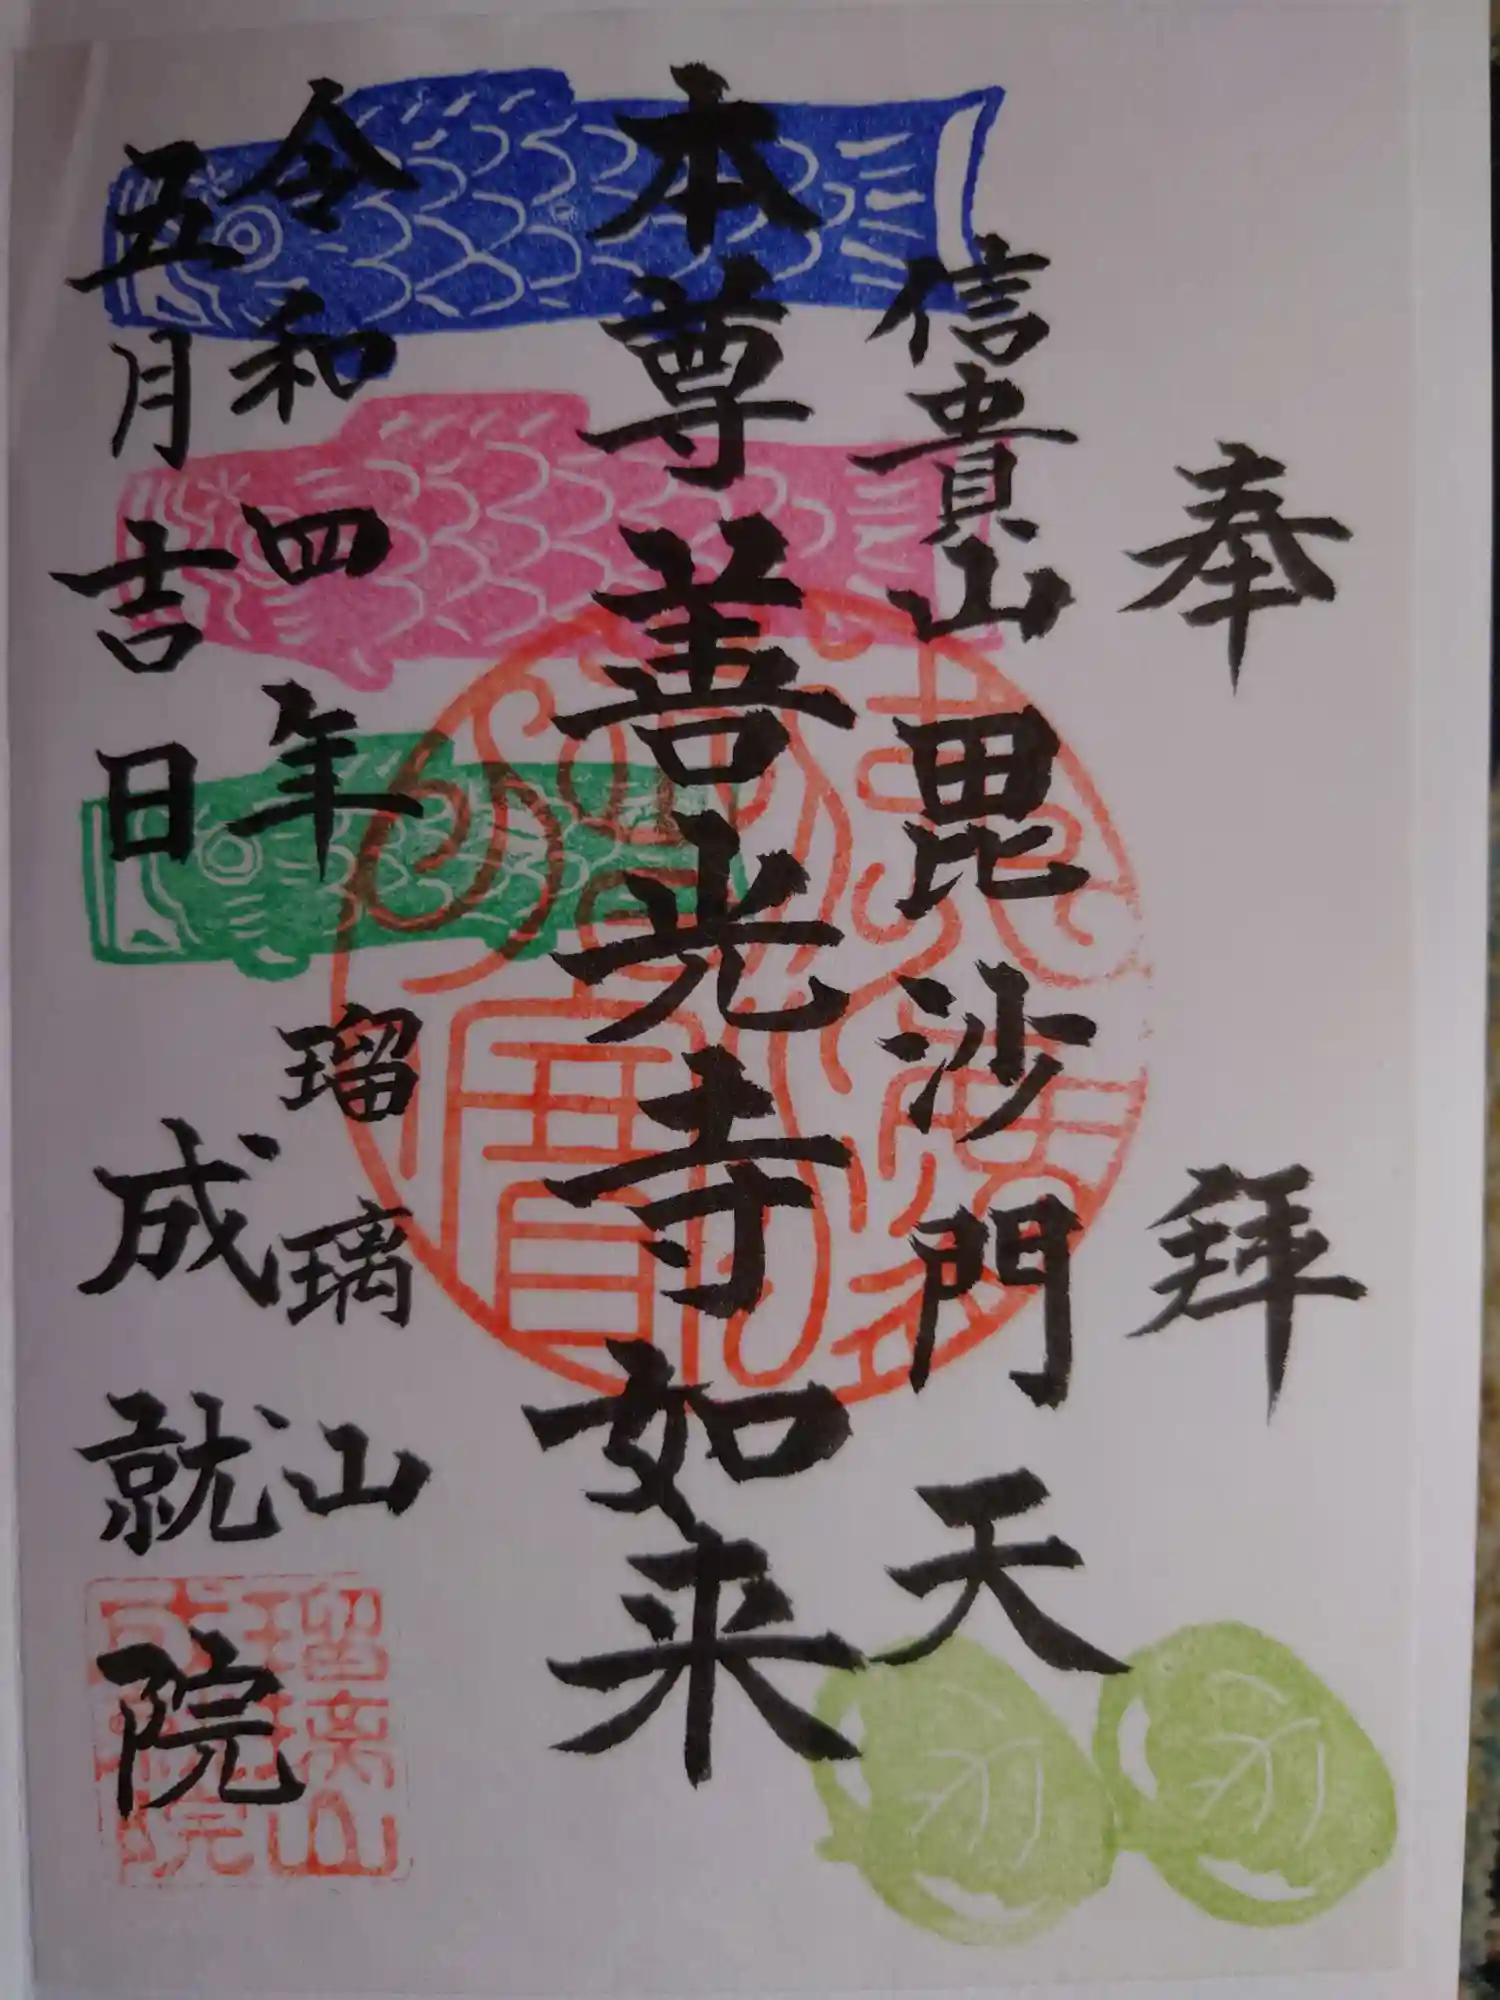 奉拝
信貴山毘沙門天
本尊善光寺如来
令和四年
五月吉日
瑠璃山
成就院
瑠璃山
成就院